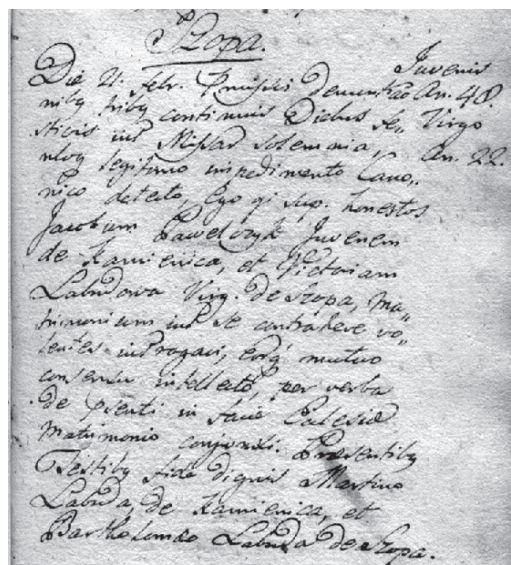 Szopa.
Die 21. Febr. Pmissis denuntiâo Juvenis
niby triby continuis Diebus fe„ An. 48.
stivis int Missar solemnia, Virgo
nloq legitimo impedimento Cano„ An. 22.
nico detecto, Ego qi sup. honestos
Jacobum Pawelczyk Juvenem
de Kamienica, et Victoriam
Labudowa Virg. de Szopa, Ma„
trimonium int se contrahere vo„
lentes introgavi, eorq mutuo
consensu intellecto, per verba
de psenti in facie Eclesiæ
Matrimonio conjunxi. Præsentiby
Testiby fide dignis Martino
Labuda, de Kamienica, et
Bartholomæo Labuda de Szopa.